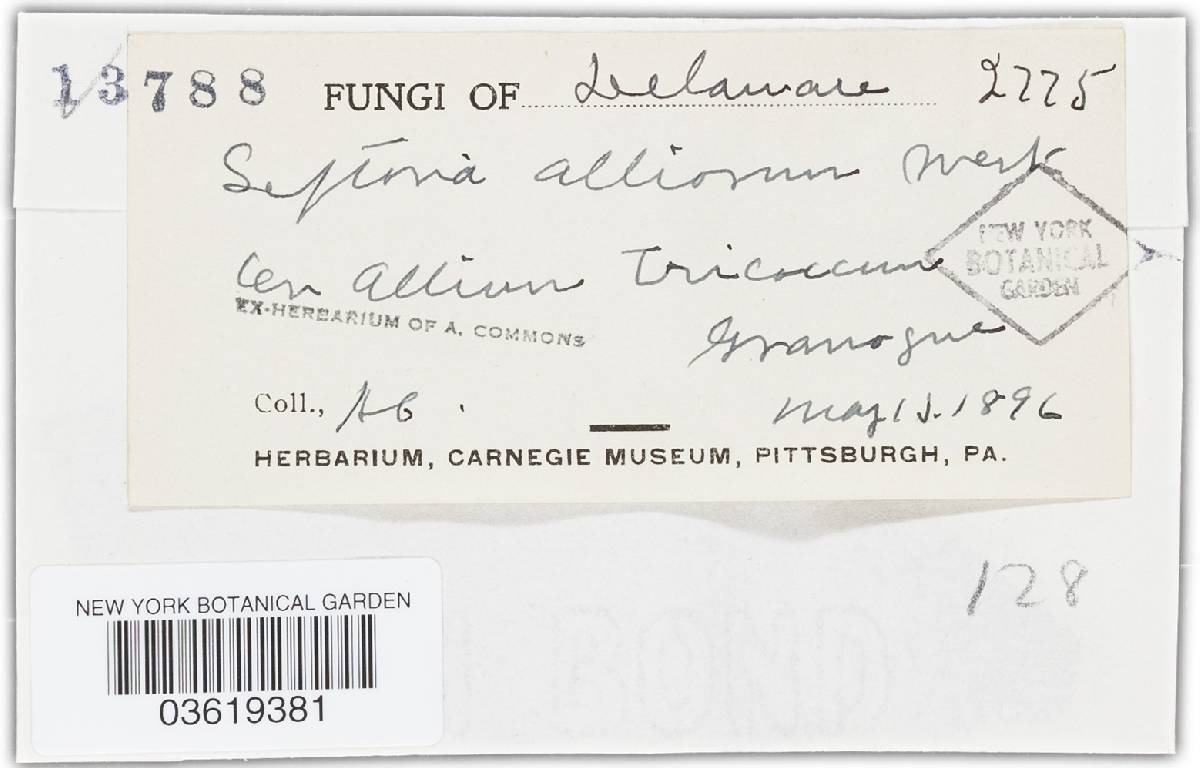 13788 FUNGI OF Delaware 2775
Septoria alliorum West
On Allium tricoccum
NEW YORK
BOTANICAL
GARDEN
EX-HERBARIUM OF A. COMMONS
Granogue
Coll., AC. May 13. 1896
HERBARIUM, CARNEGIE MUSEUM, PITTSBURGH, PA.
128
NEW YORK BOTANICAL GARDEN
03619381